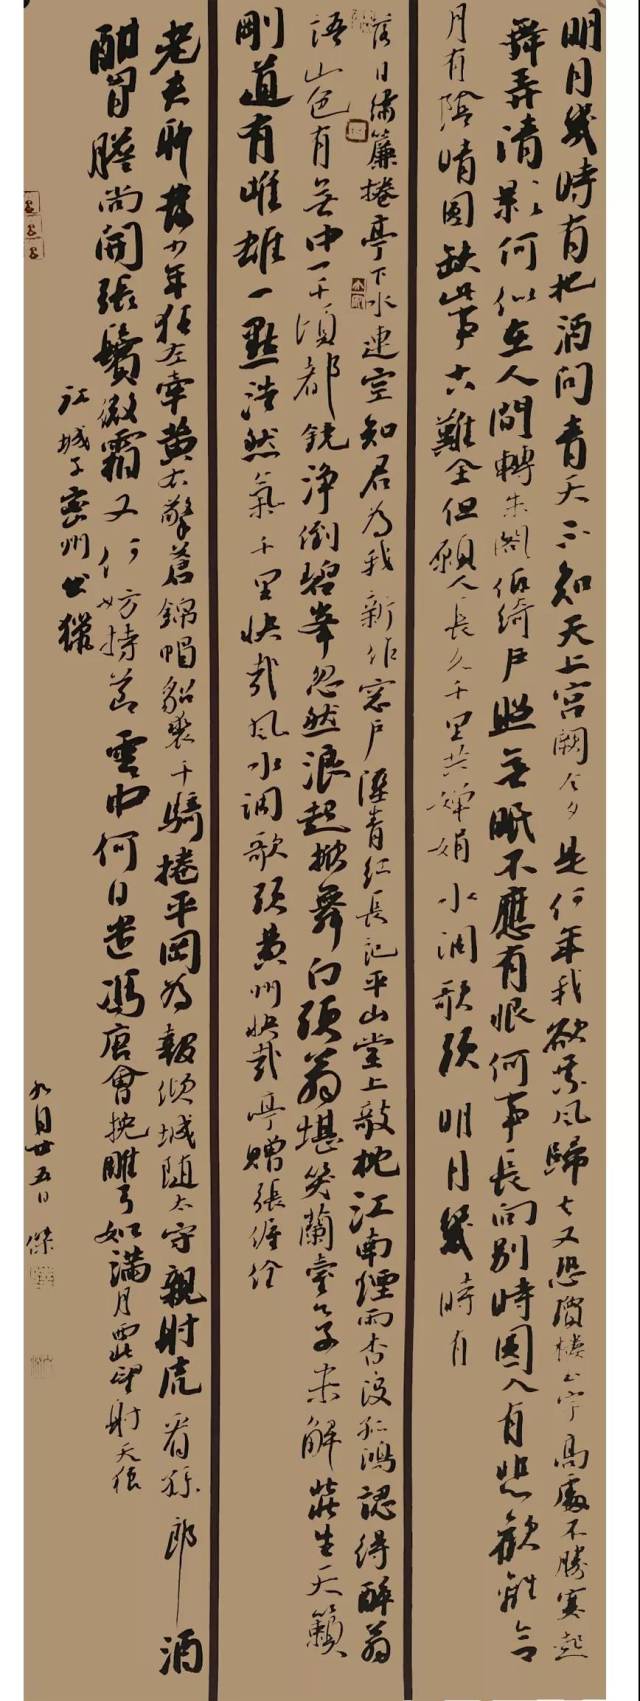 明月幾時有把酒問青天不知天上宮闕今夕是何年我欲乘風歸去又恐瓊樓玉宇高處不勝寒起
舞弄清影何似在人間轉朱閣低綺戶照無眠不應有恨何事長向別時圓人有悲歡離合
月有陰晴圓缺此事古難全但願人長久千里共嬋娟水調歌頭明月幾時有
落日繡簾捲亭下水連空知君為我新作窗戶濕青紅長記平山堂上敧枕江南煙雨杳沒孤鴻認得醉翁
語山色有無中一千頃都鏡淨倒碧峯忽然浪起掀舞白頭翁堪笑蘭臺公子未解莊生天籟
剛道有雌雄一點浩然氣千里快哉風水調歌頭黃州快哉亭贈張偓佺
老夫聊發少年狂左牽黃右擎蒼錦帽貂裘千騎捲平岡為報傾城隨太守親射虎看孫郎酒
酣胷膽尚開張鬢微霜又何妨持節雲中何日遣馮唐會挽雕弓如滿月西北望射天狼
江城子密州出獵
九月廿五日傑